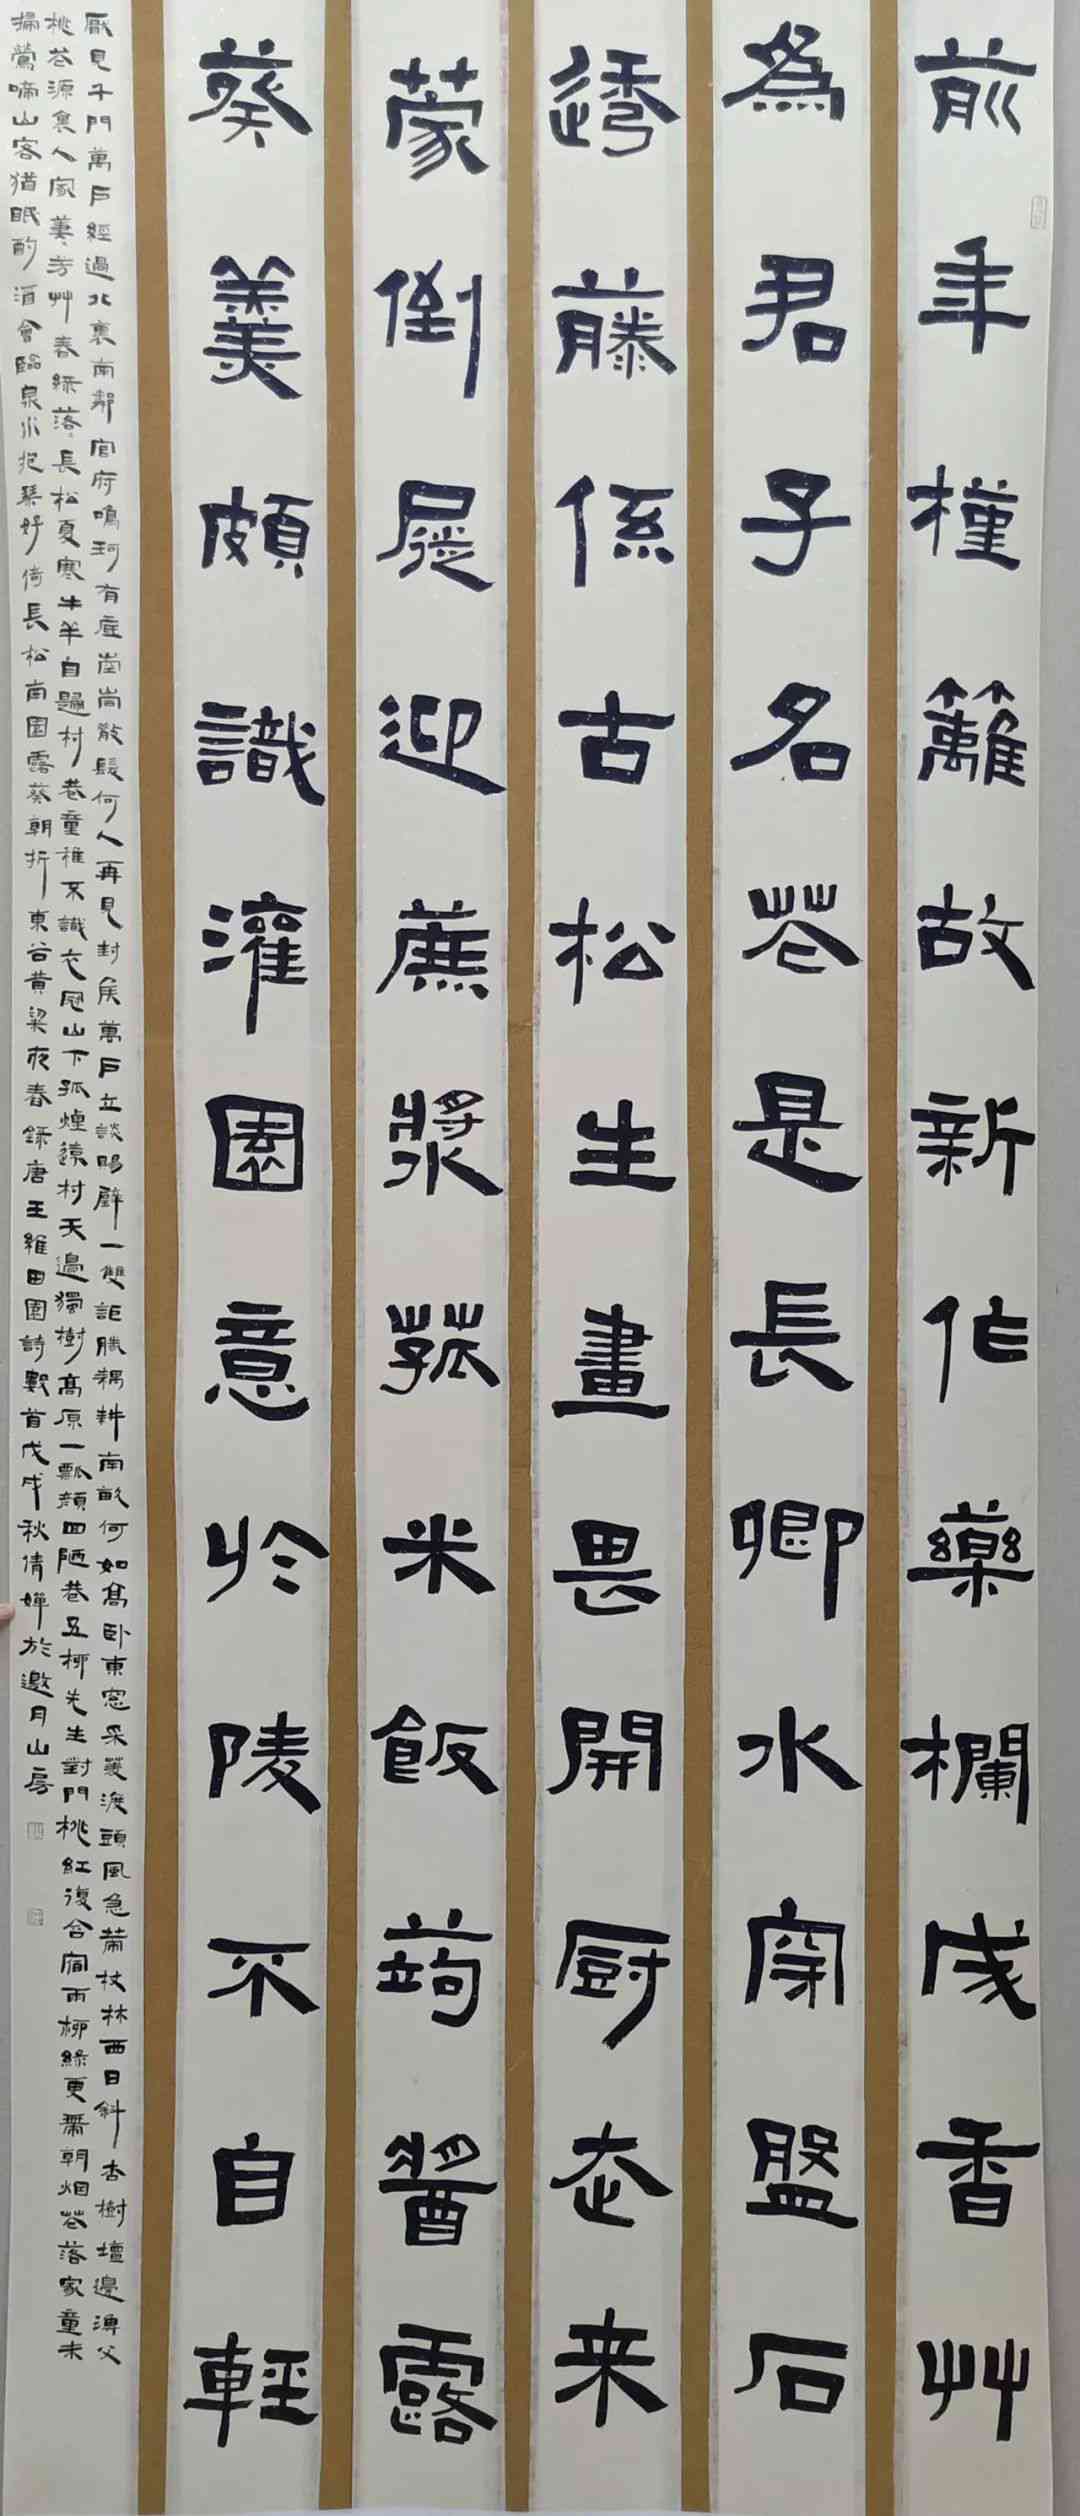 前年槿籬故新作藥欄成香艸
為君子名花是長卿水穿盤石
透藤係古松生畫畏開厨走来
蒙倒屣迎蔗漿菰米飯蒟醬露
葵羹頗識灌園意於陵不自輕
厭見千門萬戶經過北裏南鄰官府鳴珂有底崆峒散髮何人再見封侯萬戶立談賜璧一雙詎勝耦耕南畝何如高臥東窓采菱渡頭風急策杖林西日斜杏樹壇邊漁父
桃花源裏人家萋萋芳艸春綠落落長松夏寒牛羊自歸村巷童稚不識衣冠山下孤煙遠村天邊獨樹高原一瓢顏回陋巷五柳先生對門桃紅復含宿雨柳綠更帶朝烟花落家童未
掃鶯啼山客猶眠酌酒會臨泉水抱琴好倚長松南園露葵朝折東谷黃粱夜舂録唐王維田園詩數首戊戌秋倩嬋於邀月山房